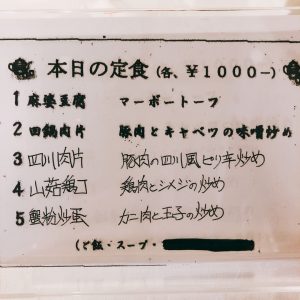 本日の定食(各、¥1000-)
1 麻婆豆腐 マーボートーフ
2 回鍋肉片 豚肉とキャベツの味噌炒め
3 四川肉片 豚肉の四川風ピリ辛炒め
4 山菇鶏丁 鶏肉とシメジの炒め
5 蟹粉炒蛋 カニ肉と玉子の炒め
(ご飯・スープ・